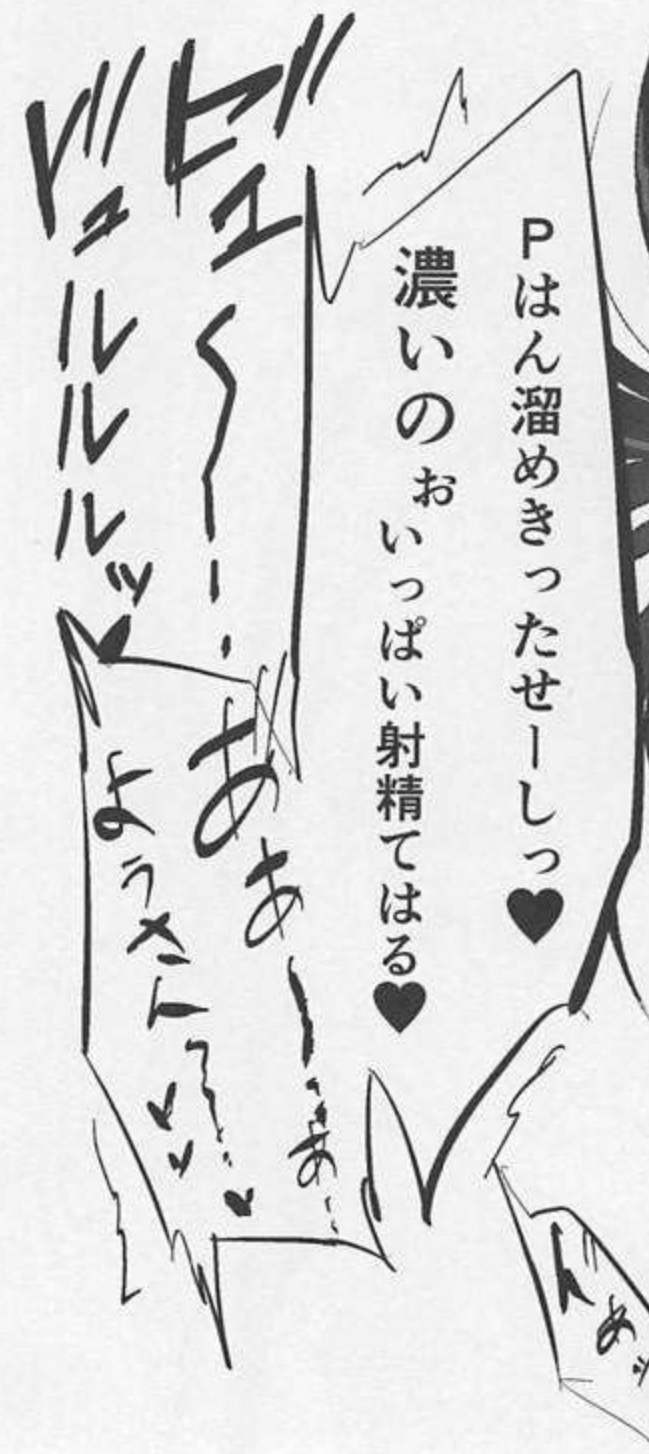 Pはん溜めきったせーしっ♥
濃いのぉ
いっぱい射精てはる♥
ビュ〜〜ー
ビュルルルッ♥
ああーーあー
ようさん〜♥♥♥